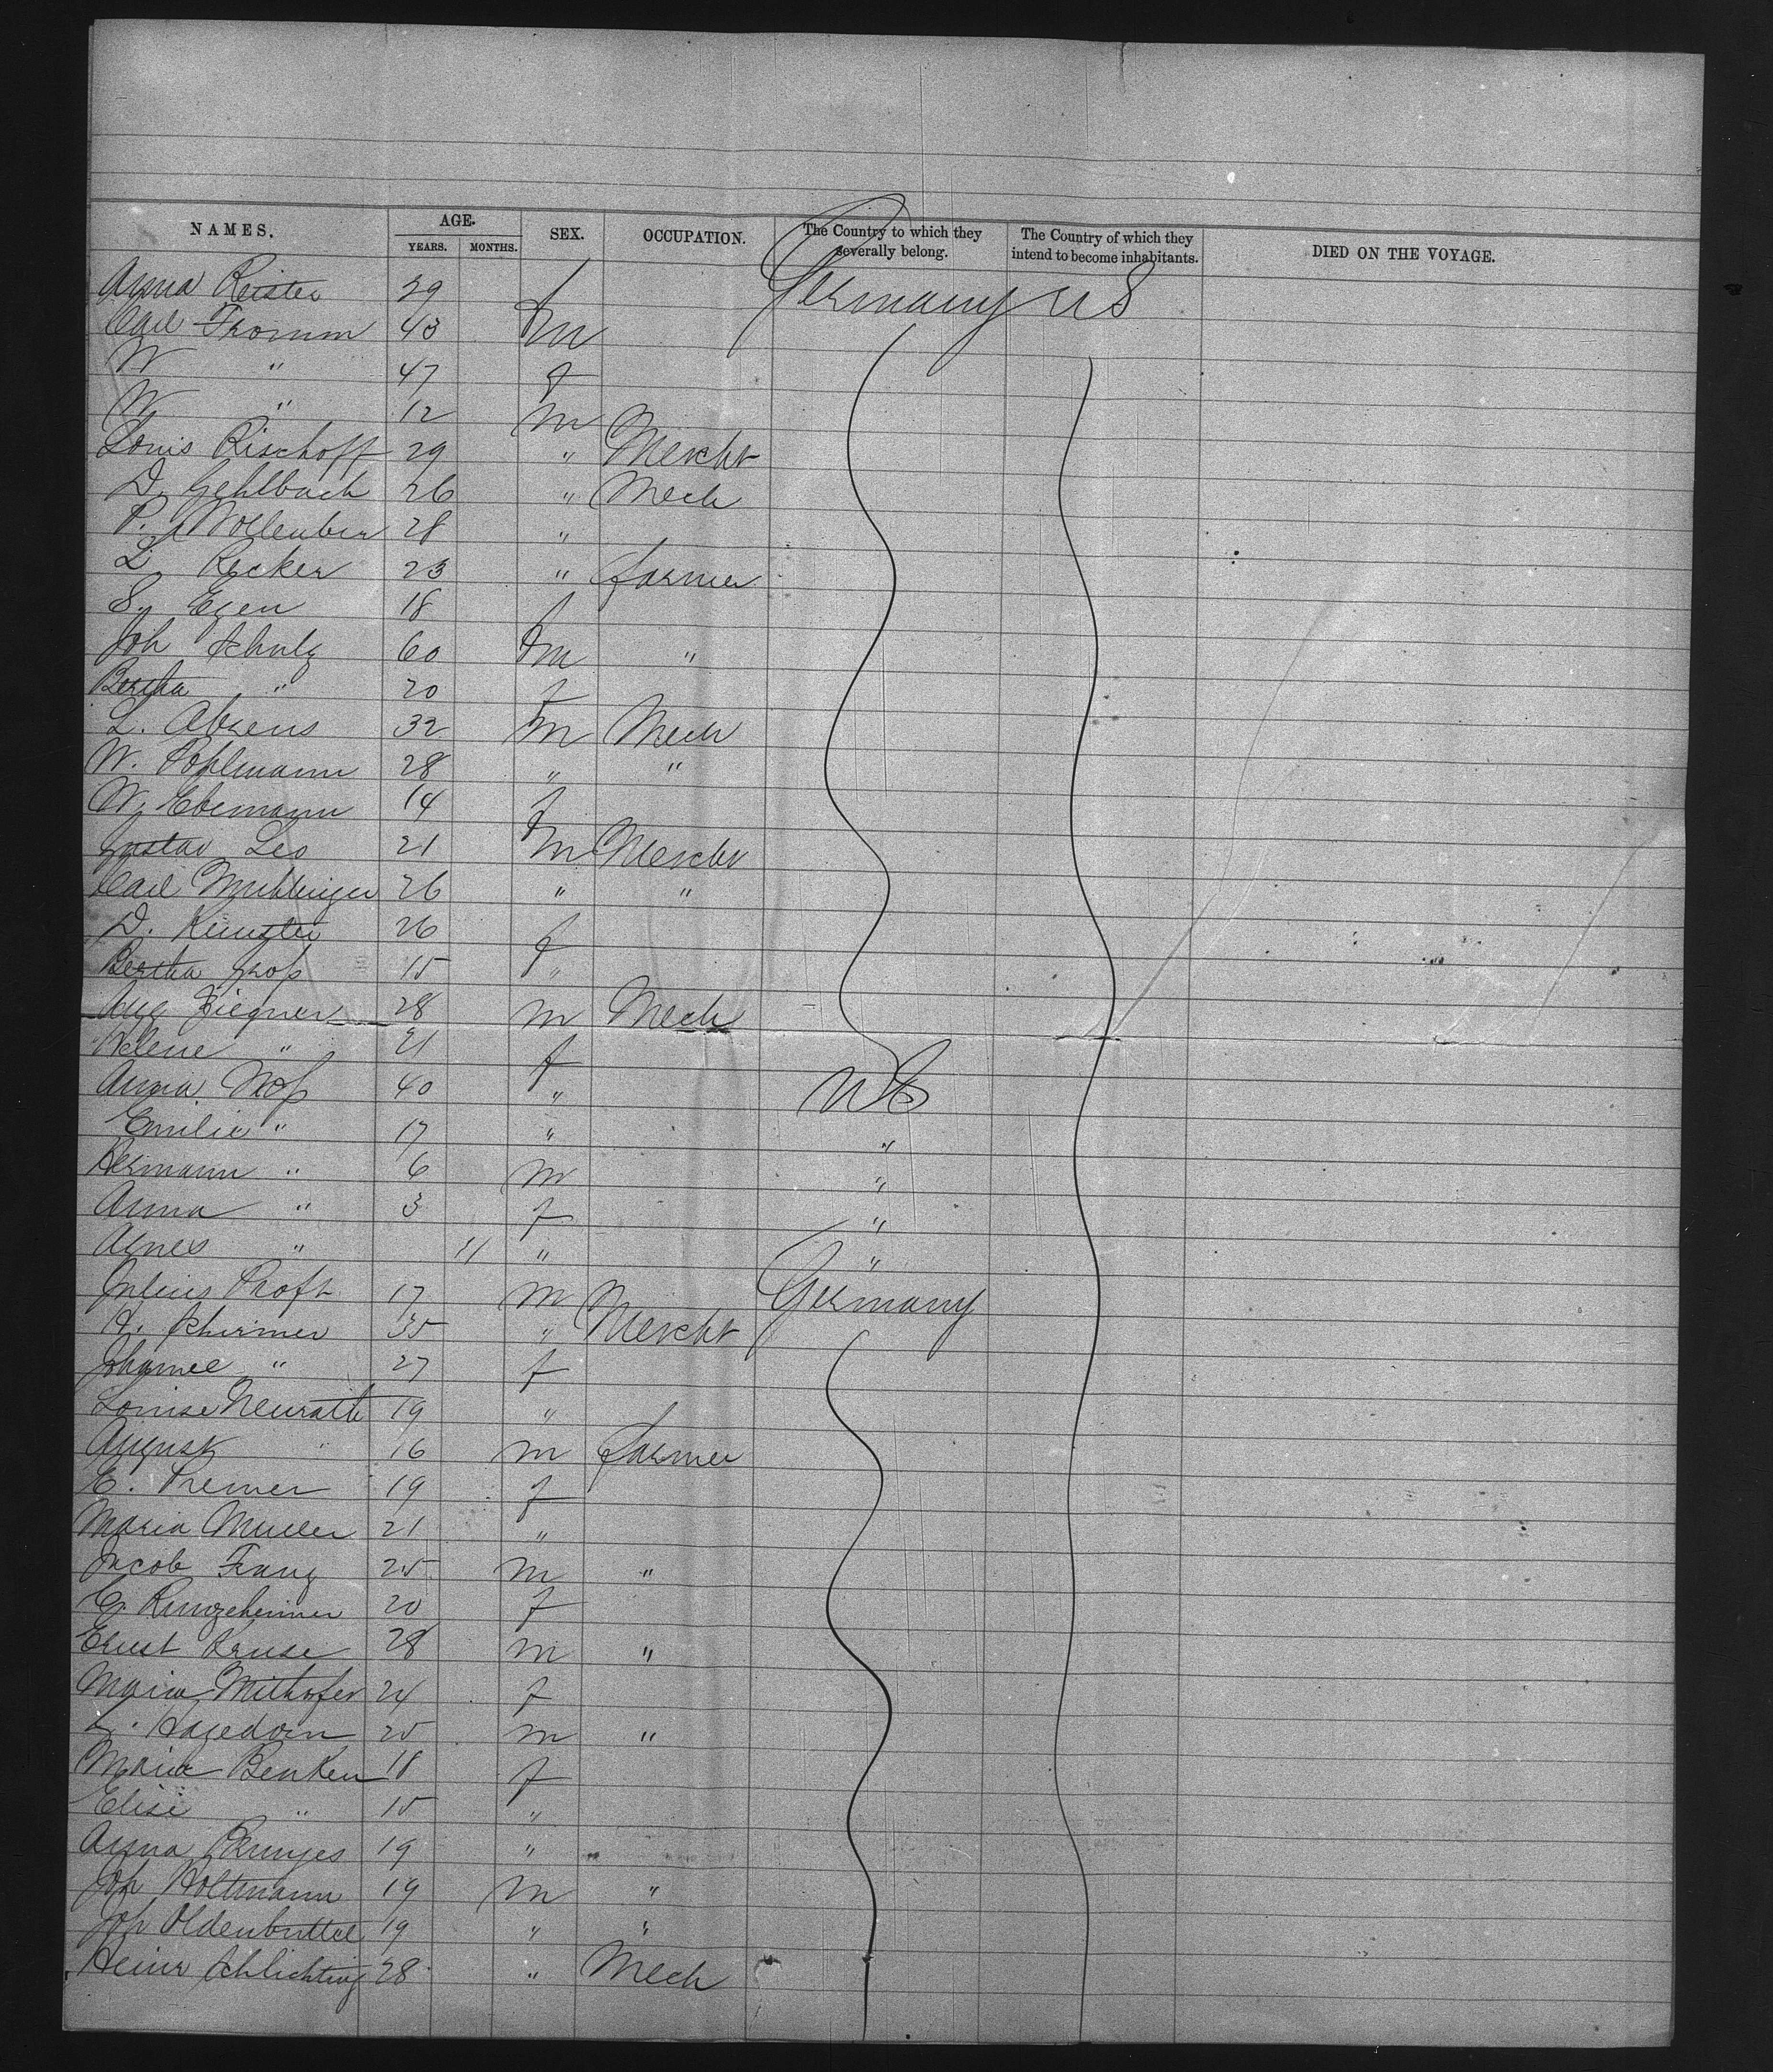 NAMES. AGE. YEARS. MONTHS. SEX. OCCUPATION. The Country to which they severally belong. The Country of which they intend to become inhabitants. DIED ON THE VOYAGE.
Anna Reister 29 f Germany US
Carl Fromm 43 m
W " 47 f
W " 12 m
Louis Bischoff 29 " Mercht
D. Gehlbach 26 " Mech
P. Wollenber 28 "
L. Recker 23 " farmer
S. Egen 18 f
Joh Schulz 60 m "
Bertha " 20 f
L. Ahrens 32 m Mech
W. Pohlmann 28 " "
W. Ebemann 14 f
Gustav Leo 21 m Mercht
Carl 26 " "
D. 26 f
Bertha Groß 15 "
Aug Ziegner 28 m Mech
Helene " 21 f
Anna Noß 40 " US
Emilie " 17 " "
Hermann " 6 m "
Anna " 3 f "
Agnes " 11 " "
Julius Proft 17 m Germany
H. Schirmer 35 " Mercht
" 27 f
Louise Neurath 19 "
August " 16 m farmer
E. 19 f
Maria Muller 21 "
Jacob Franz 25 m "
C. 20 f
Ernst Kruse 28 m "
Maria Mithofer 24 f
Hagedorn 25 m "
Maria Benken 18 f
Elise " 15 "
Anna 19 "
Joh Holtmann 19 m "
Joh Oldenbuttel 19 " "
Heinr Schlichting 28 " Mech